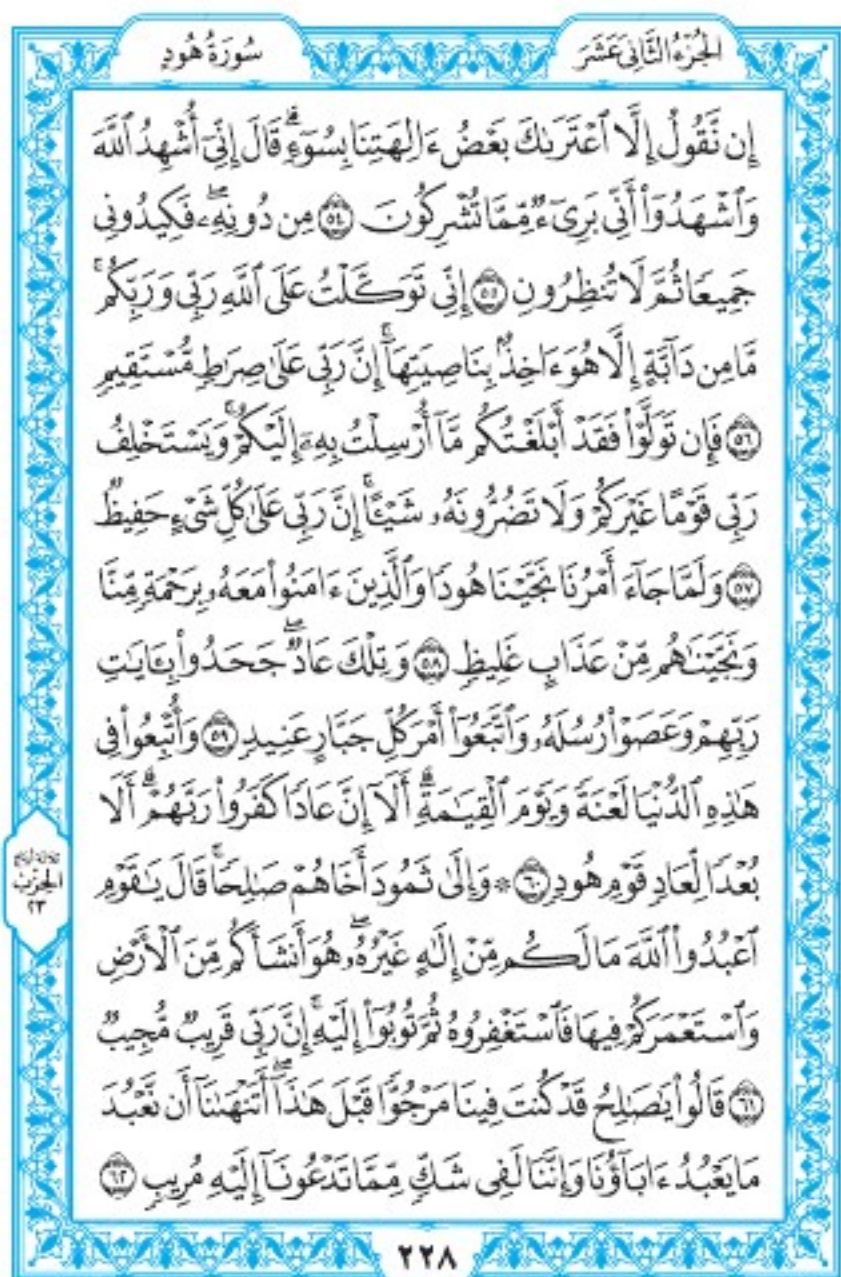 الجُزْءُ الثَّانِيَ عَشَرَ
سُورَةُ هُودٍ
إِن نَّقُولُ إِلَّا ٱعْتَرَىٰكَ بَعْضُ ءَالِهَتِنَا بِسُوٓءٖۗ قَالَ إِنِّيٓ أُشْهِدُ ٱللَّهَ
وَٱشْهَدُوٓاْ أَنِّي بَرِيٓءٞ مِّمَّا تُشْرِكُونَ ٥٤ مِن دُونِهِۦۖ فَكِيدُونِي
جَمِيعٗا ثُمَّ لَا تُنظِرُونِ ٥٥ إِنِّي تَوَكَّلْتُ عَلَى ٱللَّهِ رَبِّي وَرَبِّكُمۚ
مَّا مِن دَآبَّةٍ إِلَّا هُوَ ءَاخِذُۢ بِنَاصِيَتِهَآۚ إِنَّ رَبِّي عَلَىٰ صِرَٰطٖ مُّسْتَقِيمٖ
٥٦ فَإِن تَوَلَّوْاْ فَقَدْ أَبْلَغْتُكُم مَّآ أُرْسِلْتُ بِهِۦٓ إِلَيْكُمْۚ وَيَسْتَخْلِفُ
رَبِّي قَوْمًا غَيْرَكُمْ وَلَا تَضُرُّونَهُۥ شَيْـًٔاۚ إِنَّ رَبِّي عَلَىٰ كُلِّ شَيْءٍ حَفِيظٞ
٥٧ وَلَمَّا جَآءَ أَمْرُنَا نَجَّيْنَا هُودٗا وَٱلَّذِينَ ءَامَنُواْ مَعَهُۥ بِرَحْمَةٖ مِّنَّا
وَنَجَّيْنَٰهُم مِّنْ عَذَابٍ غَلِيظٖ ٥٨ وَتِلْكَ عَادٞۖ جَحَدُواْ بِـَٔايَٰتِ
رَبِّهِمْ وَعَصَوْاْ رُسُلَهُۥ وَٱتَّبَعُوٓاْ أَمْرَ كُلِّ جَبَّارٍ عَنِيدٖ ٥٩ وَأُتْبِعُواْ فِي
هَٰذِهِ ٱلدُّنْيَا لَعْنَةٗ وَيَوْمَ ٱلْقِيَٰمَةِۗ أَلَآ إِنَّ عَادٗا كَفَرُواْ رَبَّهُمْۗ أَلَا
بُعْدٗا لِّعَادٖ قَوْمِ هُودٖ ٦٠ ۞ وَإِلَىٰ ثَمُودَ أَخَاهُمْ صَٰلِحٗاۚ قَالَ يَٰقَوْمِ
ٱعْبُدُواْ ٱللَّهَ مَا لَكُم مِّنْ إِلَٰهٍ غَيْرُهُۥۖ هُوَ أَنشَأَكُم مِّنَ ٱلْأَرْضِ
وَٱسْتَعْمَرَكُمْ فِيهَا فَٱسْتَغْفِرُوهُ ثُمَّ تُوبُوٓاْ إِلَيْهِۚ إِنَّ رَبِّي قَرِيبٞ مُّجِيبٞ
٦١ قَالُواْ يَٰصَٰلِحُ قَدْ كُنتَ فِينَا مَرْجُوّٗا قَبْلَ هَٰذَآۖ أَتَنْهَىٰنَآ أَن نَّعْبُدَ
مَا يَعْبُدُ ءَابَآؤُنَا وَإِنَّنَا لَفِي شَكّٖ مِّمَّا تَدْعُونَآ إِلَيْهِ مُرِيبٖ ٦٢
الحِزْب
٢٣
٢٢٨